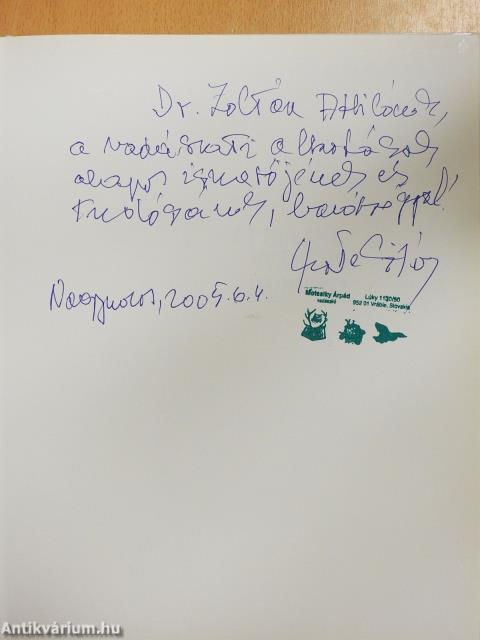 Dr. Zoltán Attilának,
a vadászati alkotások
alapos ismerőjének és
tudósának, barátsággal!
2005.6.4.
Motesiky Árpád
Lúky 1130/50
952 01 Vráble, Slovakia
Antikvárium.hu